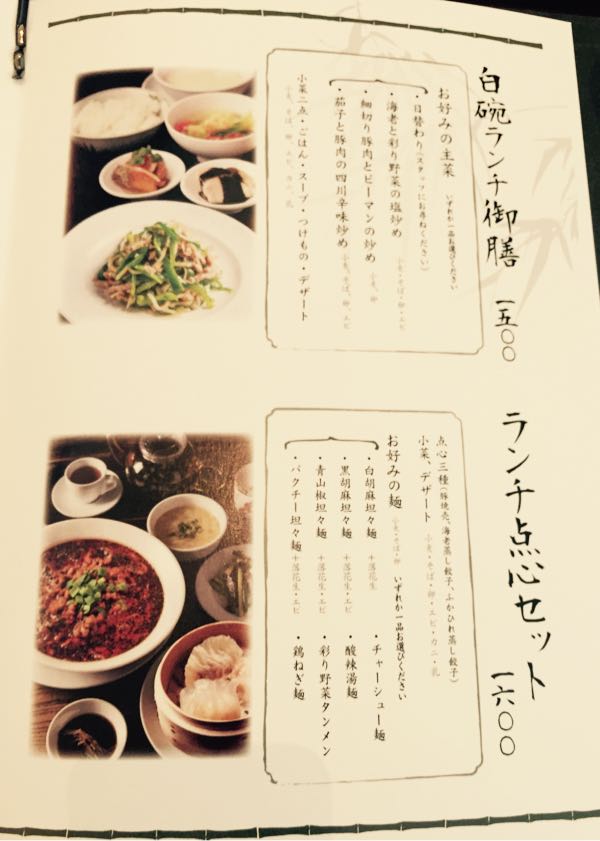 白碗ランチ御膳 一五〇〇
お好みの主菜 いずれか一品お選びください
・日替わり(スタッフにお尋ねください)
・海老と彩り野菜の塩炒め 小麦・そば・卵・エビ
・細切り豚肉とピーマンの炒め 小麦、卵
・茄子と豚肉の四川辛味炒め 小麦、そば、卵、エビ
小菜二点・ごはん・スープ・つけもの・デザート
小麦、そば、卵、エビ、カニ、乳
ランチ点心セット 一六〇〇
点心三種(豚焼売、海老蒸し餃子、ふかひれ蒸し餃子)
小菜、デザート 小麦・そば・卵・エビ・カニ・乳
お好みの麺 小麦・そば・卵 いずれか一品お選びください
・白胡麻坦々麺 +落花生
・黒胡麻坦々麺 +落花生・エビ
・青山椒坦々麺 +落花生・エビ
・パクチー坦々麺 +落花生・エビ
・チャーシュー麺
・酸辣湯麺
・彩り野菜タンメン
・鶏ねぎ麺